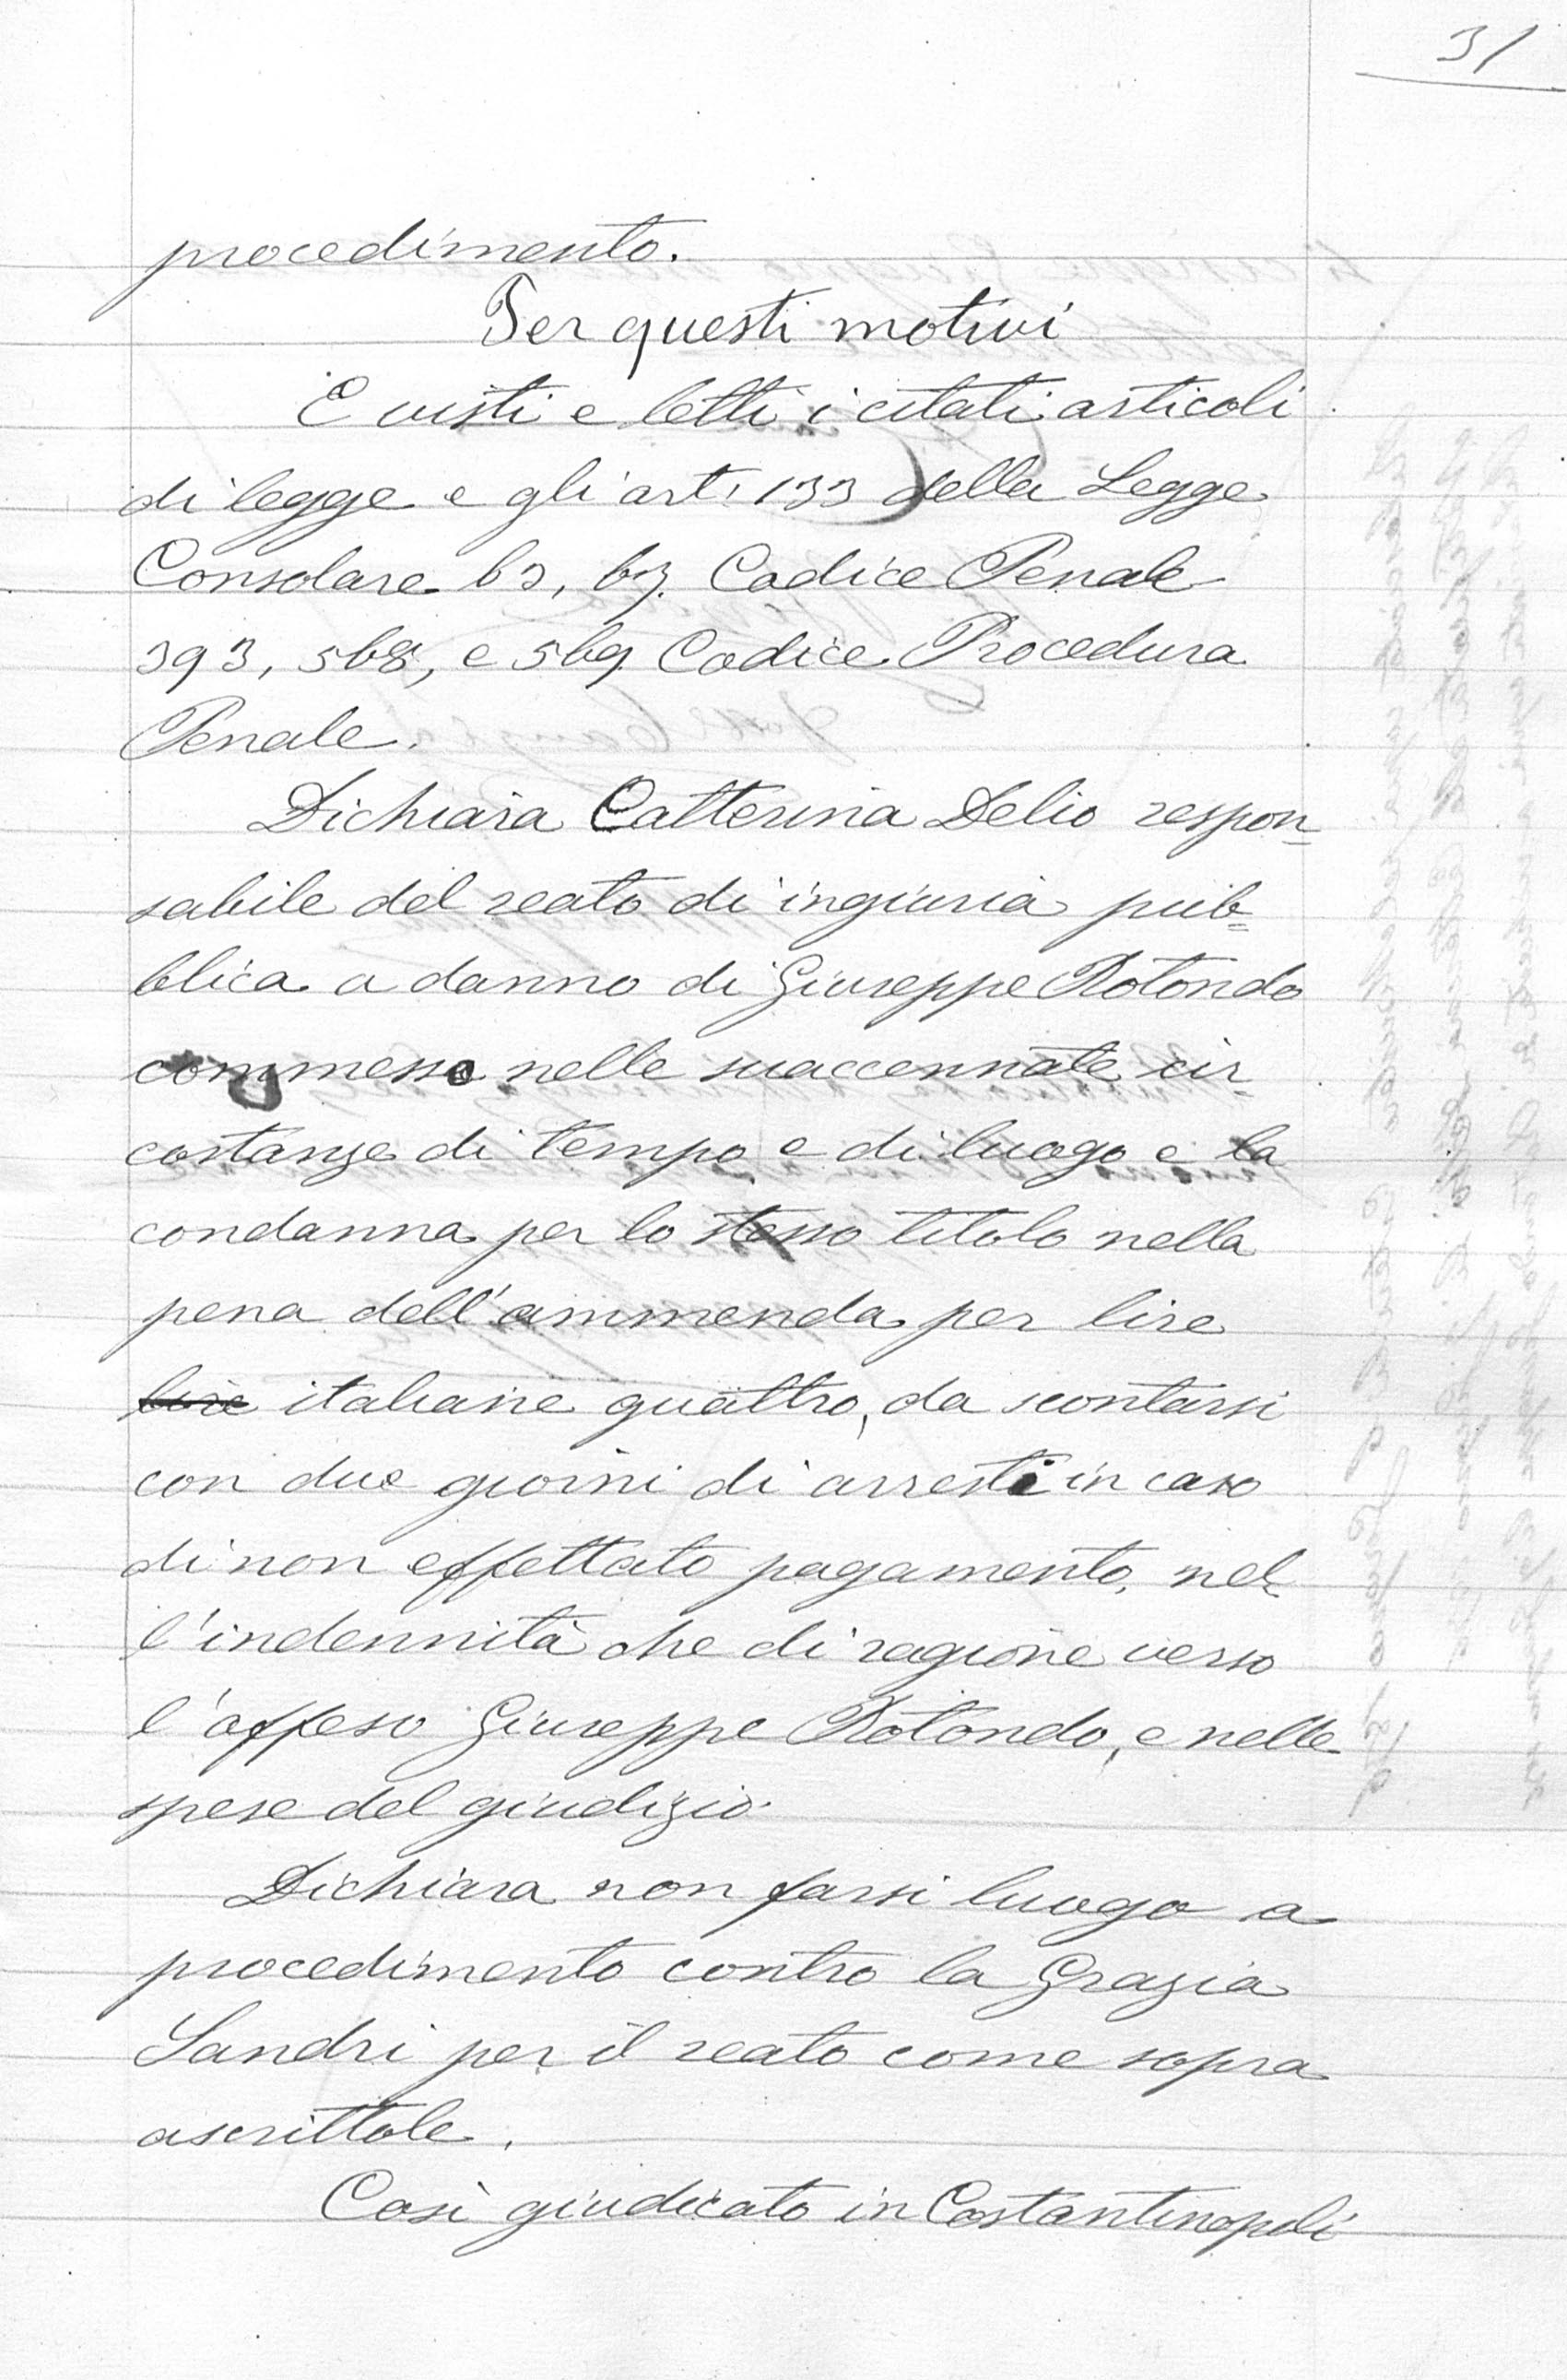 31
procedimento.
Per questi motivi
E visti e letti i citati articoli
di legge e gli art. 133 della Legge
Consolare 63, 67. Codice Penale
393, 568, e 569 Codice Procedura
Penale.
Dichiara Catterina Delio respon=
sabile del reato di ingiuria pub=
blica a danno di Giuseppe Rotondo
commesso nelle suaccennate cir=
costanze di tempo e di luogo e la
condanna per lo stesso titolo nella
pena dell'ammenda per lire
lire italiane quattro, da scontarsi
con due giorni di arresti in caso
di non effettato pagamento, nel=
l'indennità che di ragione verso
l'offeso Giuseppe Rotondo, e nelle
spese del giudizio.
Dichiara non farsi luogo a
procedimento contro la Grazia
Sandri per il reato come sopra
ascrittole.
Così giudicato in Costantinopoli